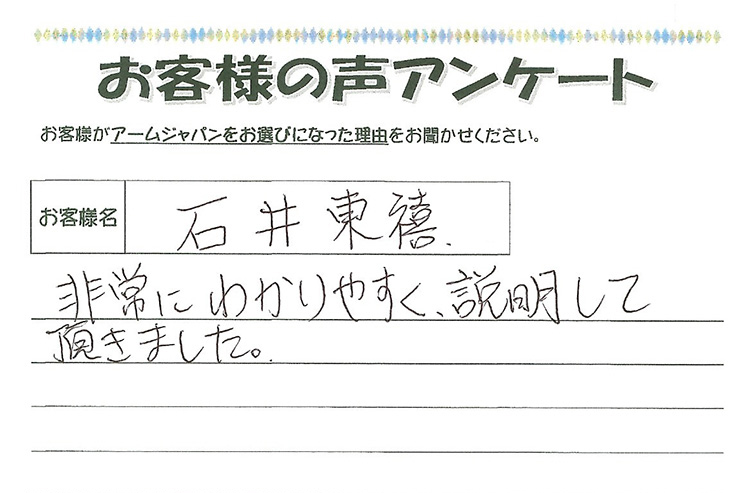 お客様の声アンケート
お客様がアームジャパンをお選びになった理由をお聞かせください。
お客様名
石井東禧.
非常にわかりやすく、説明して
頂きました。